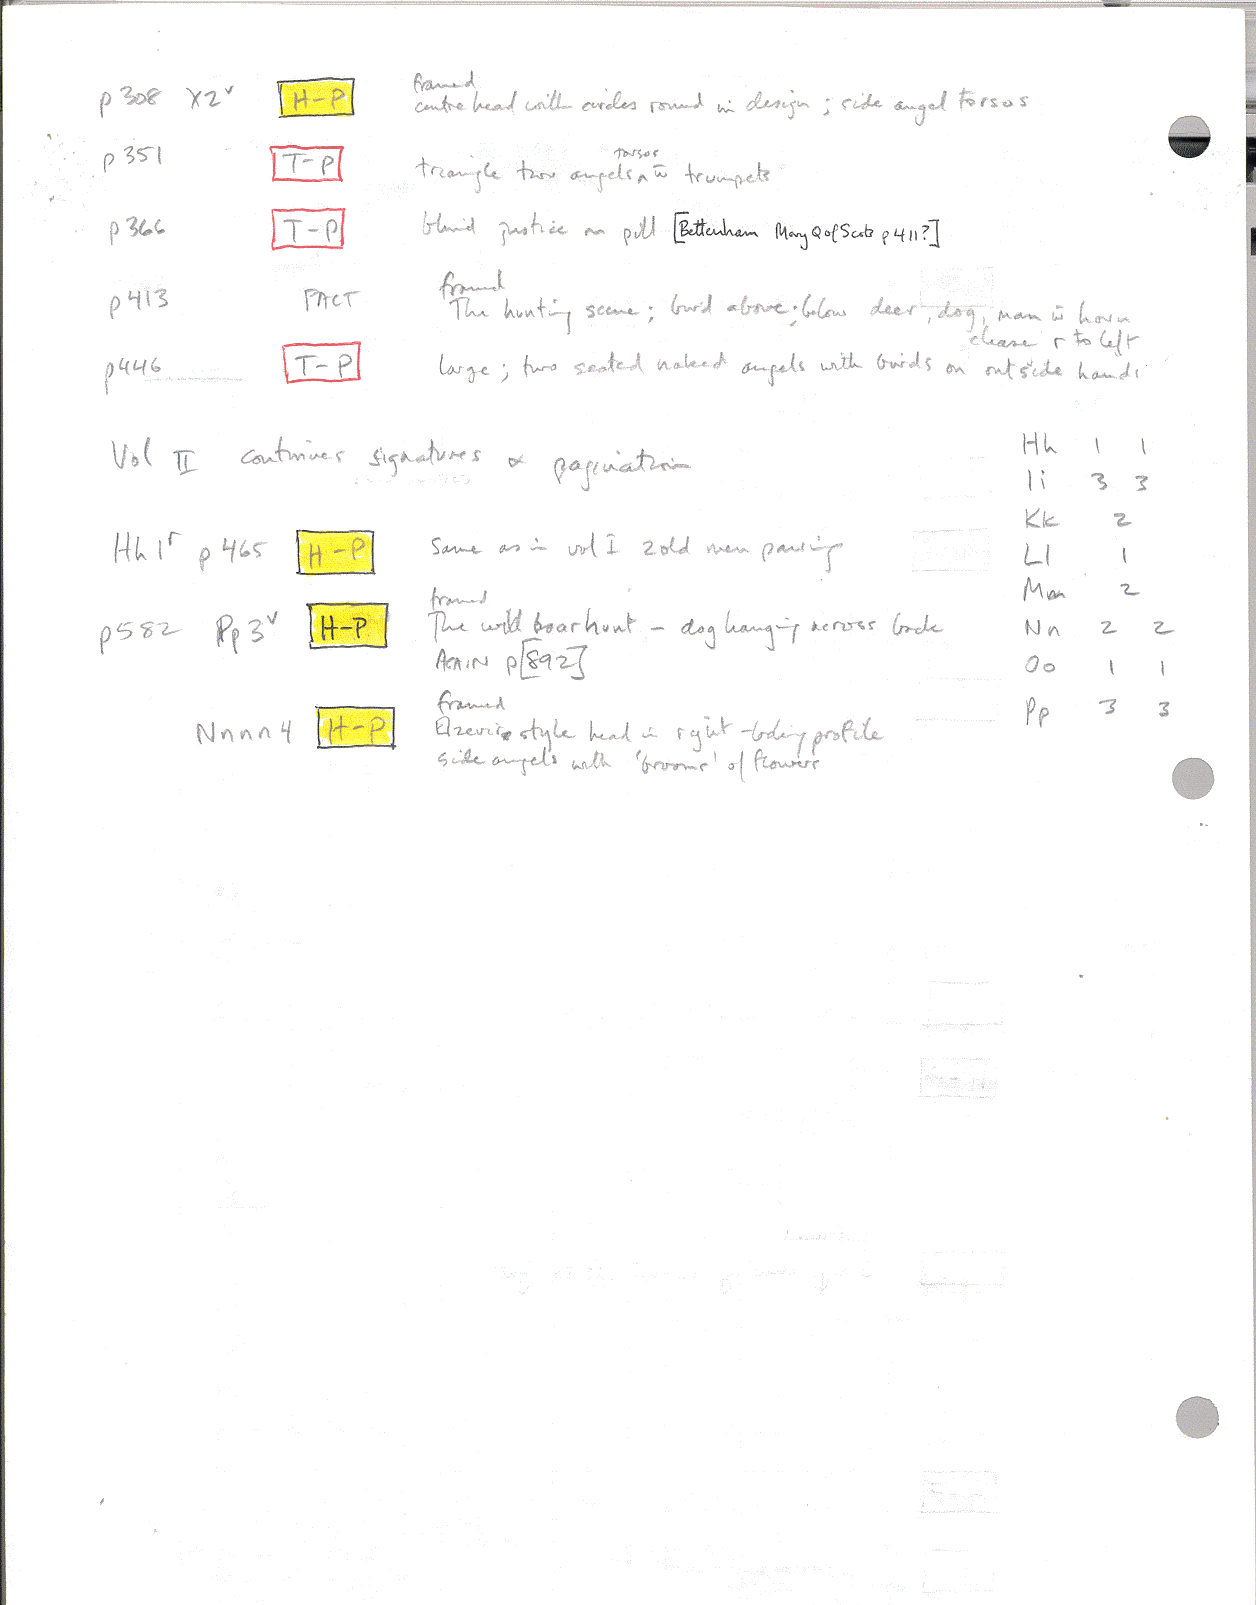 framed
p308 X2v H-P centre head with circles round in design; side angel torsos
torsos
p351 T-P triangle two angels ^ w̄ trumpets
p366 T-P blind justice on [Bettenham Mary Q of Scots p411?]
framed
p413 FACT The hunting scene; bird above; below deer, dog, man w̄ horn
chase r to left
p446 T-P large; two seated naked angels with birds on outside hands
Vol II continues signatures & pagination
Hh 1 1
Ii 3 3
Kk 2
Ll 1
Mm 2
Nn 2 2
Oo 1 1
Pp 3 3
Hh1r p465 H-P Same as in vol I 2 old men
framed
p582 Pp3v H-P The wild boar hunt – dog hanging across back
AGAIN p[892]
framed
Nnnn4 H-P Elzevir style head in right-looking profile
side angels with 'brooms' of flowers